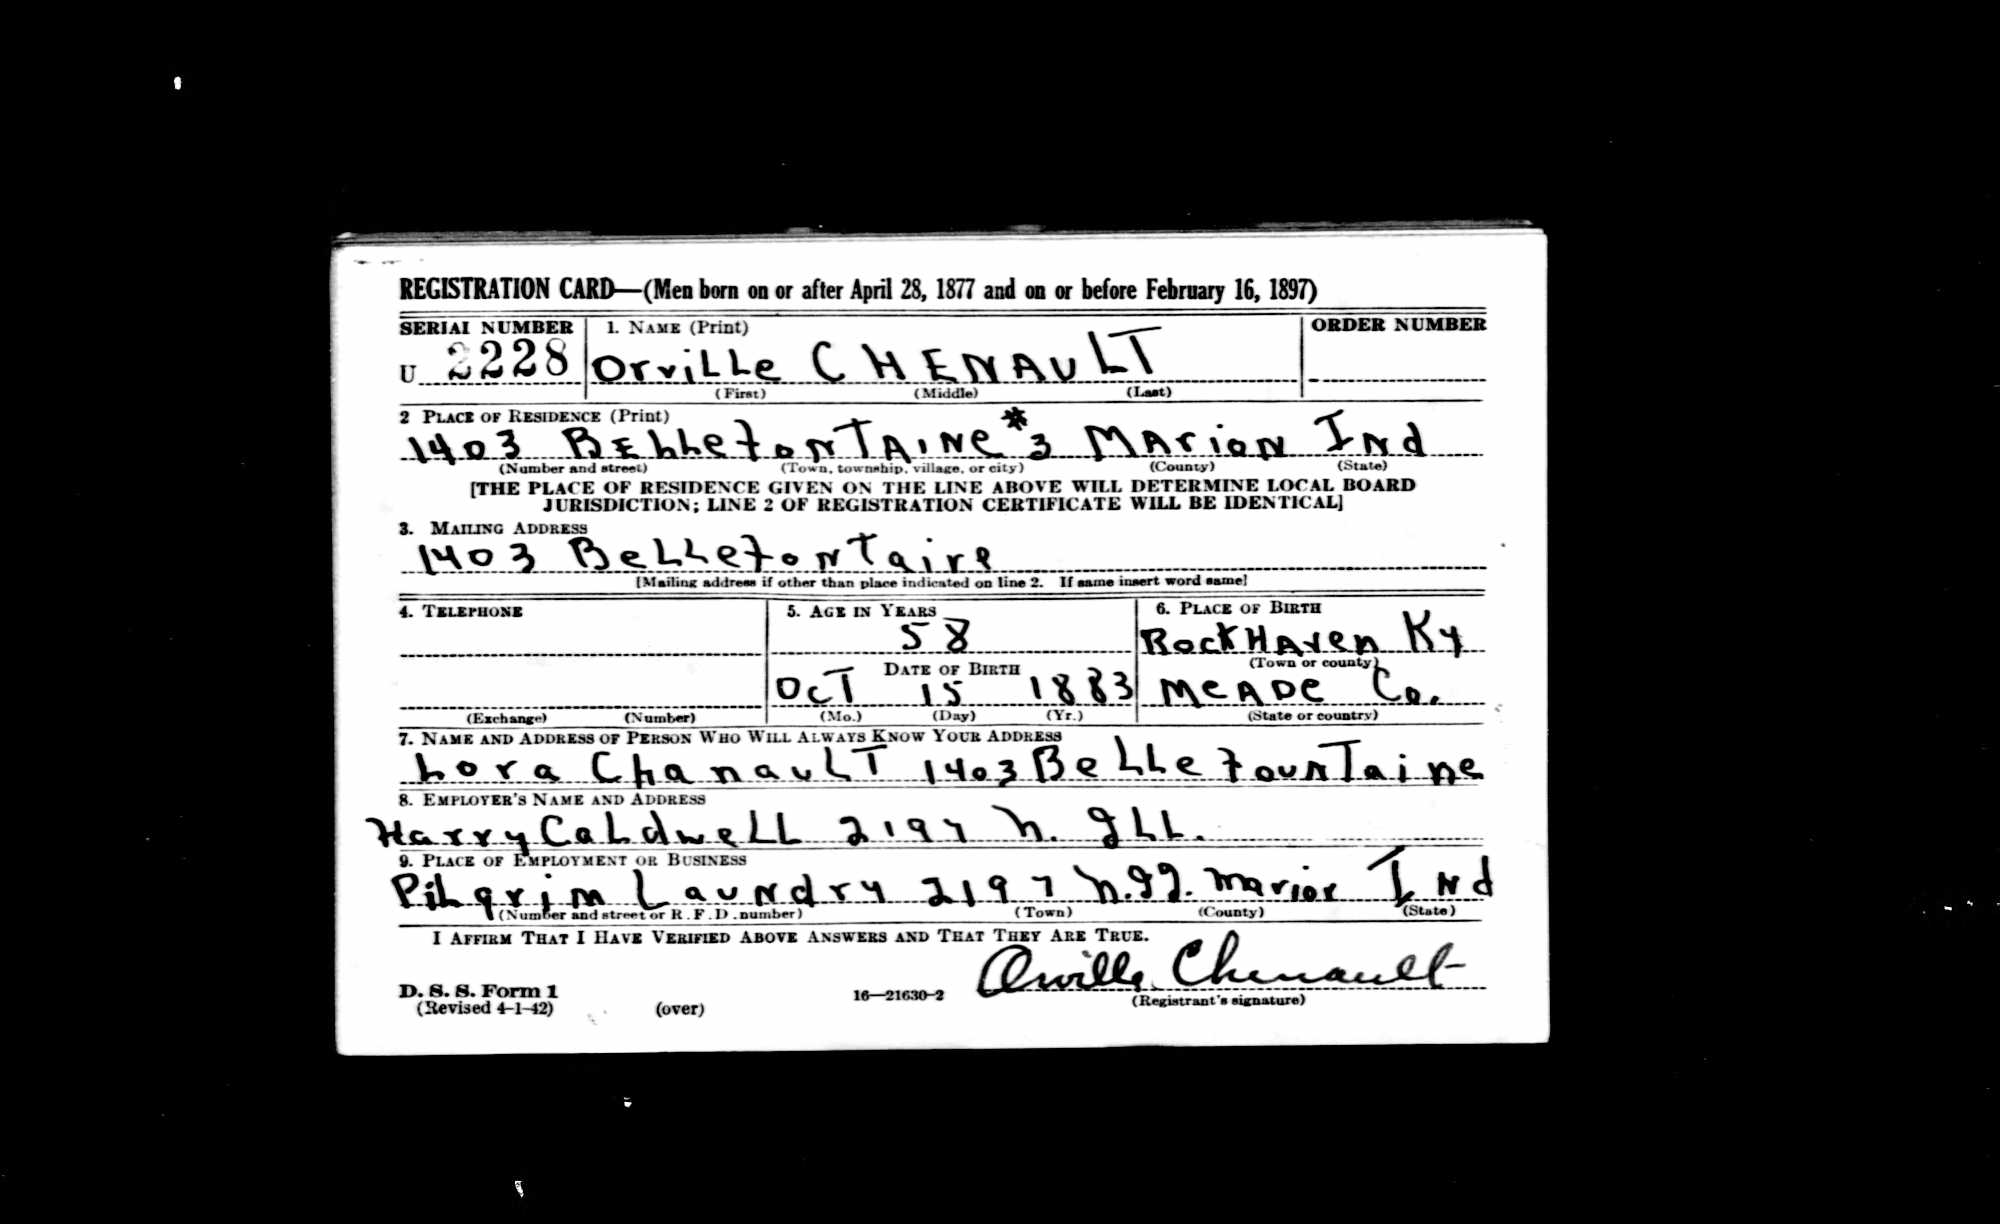 REGISTRATION CARD—(Men born on or after April 28, 1877 and on or before February 16, 1897)
SERIAL NUMBER 1. NAME (Print) ORDER NUMBER
U 2228 Orville CHENAULT
(First) (Middle) (Last)
2 PLACE OF RESIDENCE (Print)
1403 BELLefonTAINe #3 MArion INd
(Number and street) (Town, township, village, or city) (County) (State)
[THE PLACE OF RESIDENCE GIVEN ON THE LINE ABOVE WILL DETERMINE LOCAL BOARD
JURISDICTION; LINE 2 OF REGISTRATION CERTIFICATE WILL BE IDENTICAL]
3. MAILING ADDRESS
1403 BeLLefonTaine
[Mailing address if other than place indicated on line 2. If same insert word same]
4. TELEPHONE 5. AGE IN YEARS 6. PLACE OF BIRTH
58 RockHAven Ky
DATE OF BIRTH (Town or county)
OcT 15 1883 MeADe Co.
(Exchange) (Number) (Mo.) (Day) (Yr.) (State or country)
7. NAME AND ADDRESS OF PERSON WHO WILL ALWAYS KNOW YOUR ADDRESS
Lora ChanauLT 1403 BeLLefounTaine
8. EMPLOYER'S NAME AND ADDRESS
Harry CaLdweLL 2197 N. ILL.
9. PLACE OF EMPLOYMENT OR BUSINESS
PiLgrim Laundry 2197 N. Marion INd
(Number and street or R. F. D. number) (Town) (County) (State)
I AFFIRM THAT I HAVE VERIFIED ABOVE ANSWERS AND THAT THEY ARE TRUE.
Orville Chenault
D. S. S. Form 1 16—21630-2 (Registrant's signature)
(Revised 4-1-42) (over)